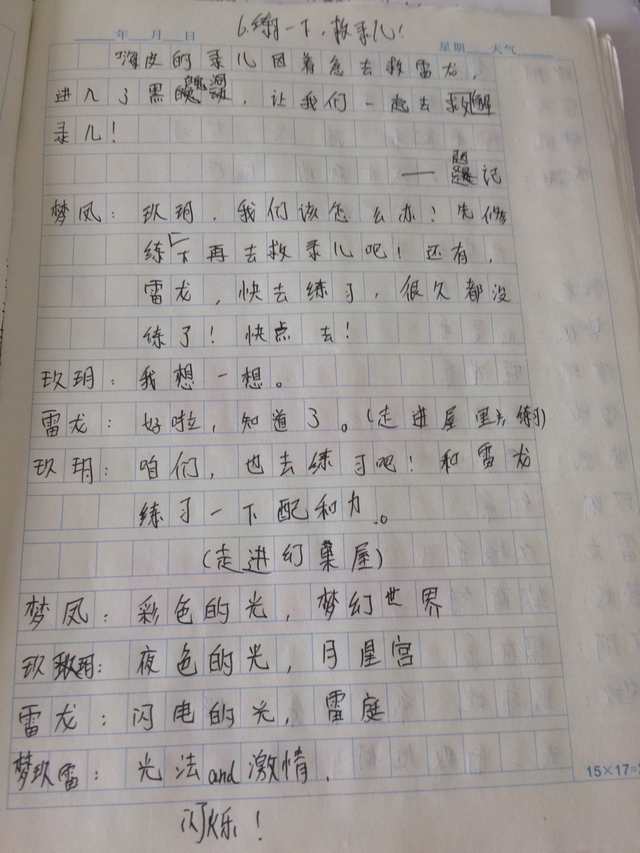 6.练习一下,救柔儿!
年 月 日 星期 天气
嗨皮的柔儿因着急去救雷龙,
进入了黑的魄洞,让我们一起去解
柔儿!
—— 题记
梦凤:玖玥,我们该怎么办!先修
练一下再去救柔儿吧!还有,
雷龙,快去练习,很久都没
练了!快点去!
玖玥:我想一想。
雷龙:好啦,知道了。(走进屋里练习)
玖玥:咱们,也去练习吧!和雷龙
练习一下配和力。
(走进幻菓屋)
梦凤:彩色的光,梦幻世界
玖玥:夜色的光,月星宫
雷龙:闪电的光,雷庭
梦玖雷:光法and激情,
闪烁!
15×17=